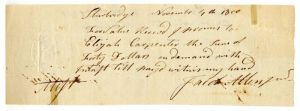 Sturbridge November 4th 1800
For value Received I promise to
Elijah Carpenter the Sum of
Forty Dollars on demand with
Intrest till payd witness my hand
Attest
Caleb Allen